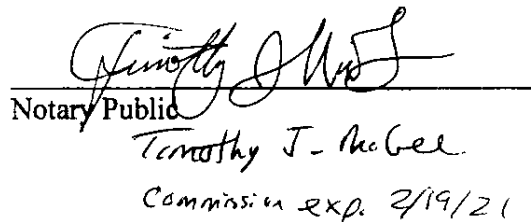 Timothy J
Notary Public
Timothy J. McGee
Commission exp. 2/19/21